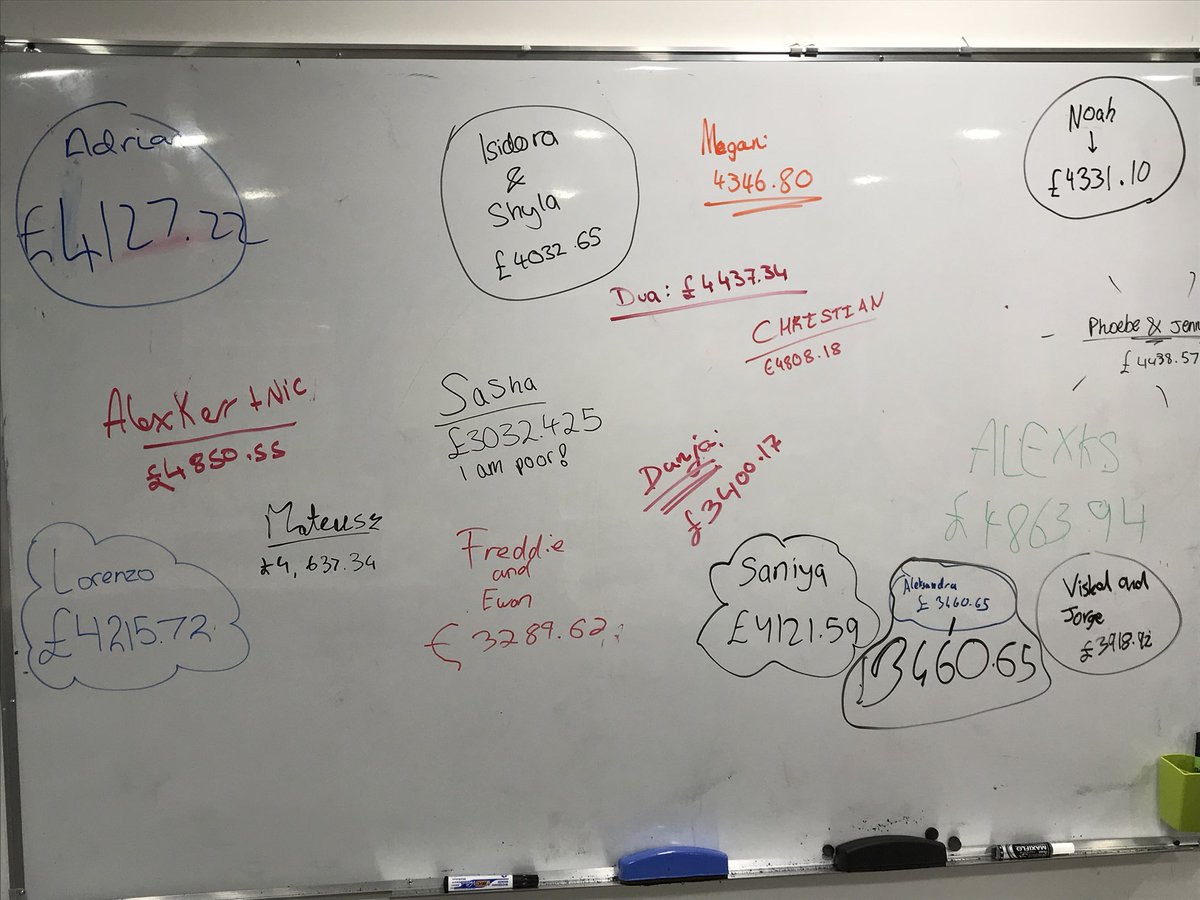 Adrian
£4127.22
Isidora
&
Shyla
£4032.65
Megan:
4346.80
Noah
↓
£4331.10
Dua: £4437.34
CHRISTIAN
€4808.18
Phoebe & Jenn
£4438.57
Alex Kerr + Nic
£4850.55
Sasha
£3032.425
I am poor!
Danja:
£3400.17
ALEXKS
£4863.94
Mateusz
£4,637.34
Lorenzo
£4215.72
Freddie
and
Ewan
€3289.62
Saniya
£4121.59
Aleksandra
£3460.65
3460.65
and
Jorge
MAXIFLO